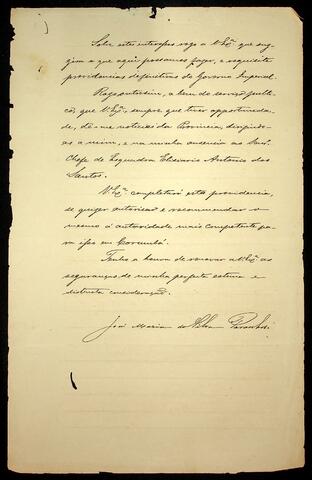 Sobre este entrefos rogo a V. Exª que
a que aqui possamos fazer, e requisite
providencias definitivas do Governo Imperial.
Rogo outrosim, a bem do serviço publi-
co, que V. Exª, sempre que tiver opportunida-
de, dê-me noticias da Provincia, dirigidas
a mim, e na minha ausencia ao Snr.
Chefe de Esquadra Elisiario Antonio dos
Santos.
V. Exª completará esta providencia,
se quizer autorisar e recommendar o
mesmo á autoridade mais competente pa-
ra isso em Corumbá.
Tenho a honra de renovar a V. Exª as
seguranças de minha perfeita estima e
distincta consideração.
José Maria da Silva Paranhos